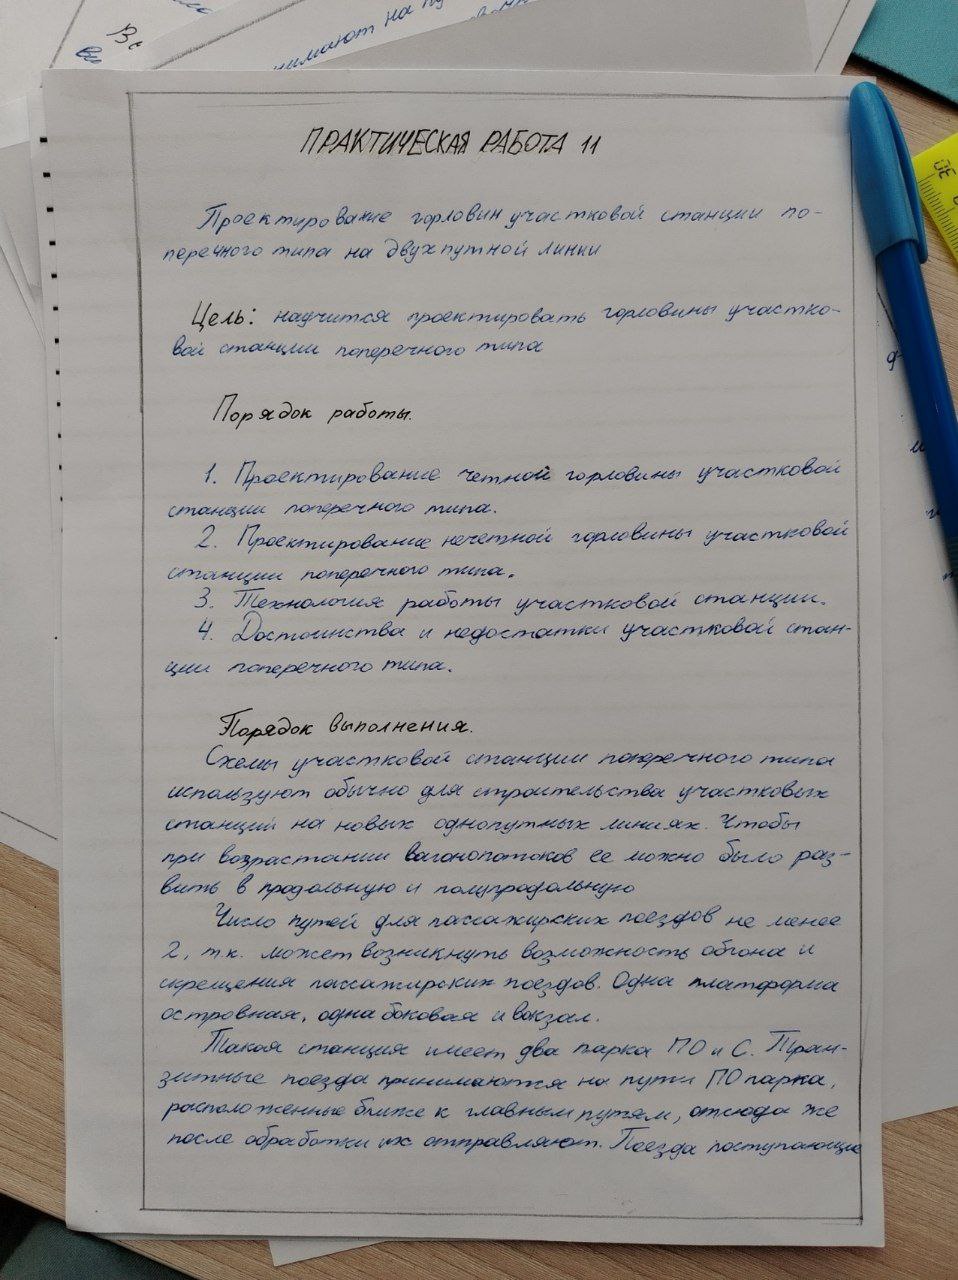 имают на пу
ПРАКТИЧЕСКАЯ РАБОТА 11
Проектирование горловин участковой станции по-
перечного типа на двухпутной линии
Цель: научится проектировать горловины участко-
вой станции поперечного типа
Порядок работы.
1. Проектирование четной горловины участковой
станции поперечного типа.
2. Проектирование нечетной горловины участковой
станции поперечного типа.
3. Технология работы участковой станции.
4. Достоинства и недостатки участковой стан-
ции поперечного типа.
Порядок выполнения.
Схемы участковой станции поперечного типа
используют обычно для строительства участковых
станций на новых однопутных линиях. Чтобы
при возрастании вагонопотоков ее можно было раз-
вить в продольную и полупродольную
Число путей для пассажирских поездов не менее
2, т.к. может возникнуть возможность обгона и
скрещения пассажирских поездов. Одна платформа
островная, одна боковая и вокзал.
Такая станция имеет два парка ПО и С. Тран-
зитные поезда принимаются на пути ПО парка,
расположенные ближе к главным путям, отсюда же
после обработки их отправляют. Поезда поступающие